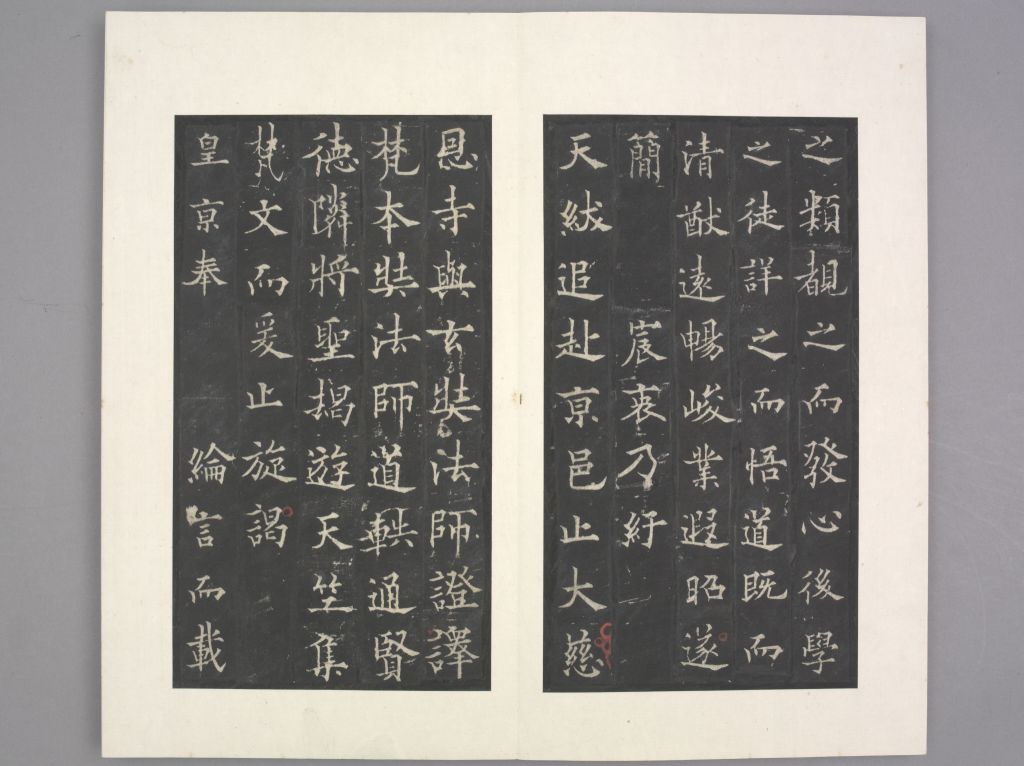 之類覩之而發心後學
之徒詳之而悟道既而
清猷遠暢峻業遐昭遂
簡宸衷乃紆
天紱追赴亰邑止大慈
恩寺與玄奘法師證譯
梵本奘法師道軼通賢
德隣將聖揭遊天竺集
梵文而爰止旋謁
皇亰奉綸言而載